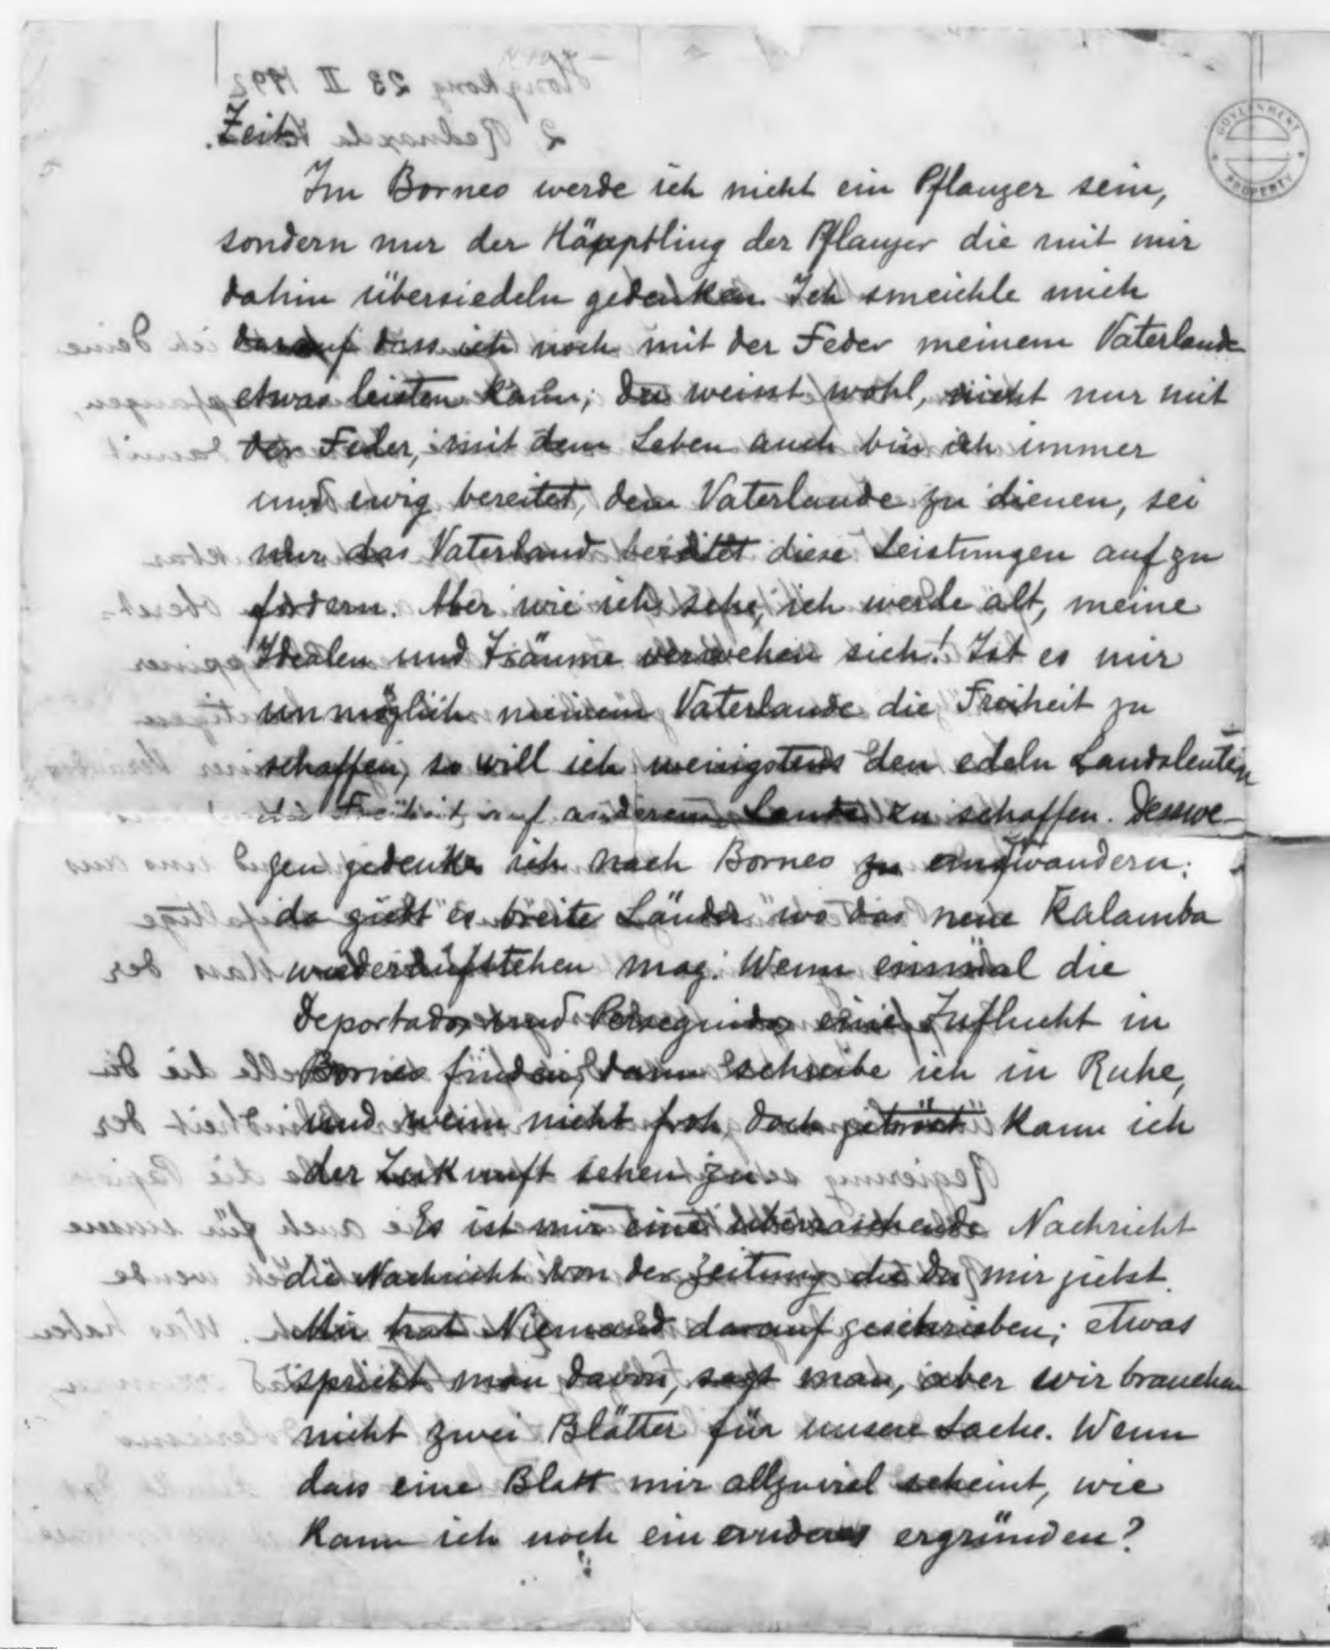 Zeit.
Im Borneo werde ich nicht ein Pflanzer sein,
sondern nur der Häuptling der Pflanzer die mit mir
dahin übersiedeln gedenken. Ich smeichle mich
darauf dass ich noch mit der Feder meinem Vaterlande
etwas leisten kann; du weisst wohl, nicht nur mit
der Feder, mit dem Leben auch bin ich immer
und ewig bereitet, dem Vaterlande zu dienen, sei
nur das Vaterland bereitet diese Leistungen auf zu
fordern. Aber wie ich sehe, ich werde alt, meine
Idealen und Träume verwehen sich! Ist es mir
unmöglich meinem Vaterlande die Freiheit zu
schaffen, so will ich wenigstens den edeln Landsleuten
die Freiheit auf anderem Lande zu schaffen. Desswe-
gen gedenke ich nach Borneo zu einzuwandern:
da giebt es breite Länder wo das neue Kalamba
wiederaufstehen mag. Wenn einmal die
Deportados und Perseguidos eine Zuflucht in
Borneo finden, dann schreibe ich in Ruhe,
und wenn nicht froh, doch getröst kann ich
der Zukunft sehen zu
Es ist mir eine überraschende Nachricht
die Nachricht von der Zeitung die du mir giebst.
Mir hat Niemand darauf geschrieben; etwas
spricht man davon, sagt man, aber wir brauchen
nicht zwei Blätter für unsere Sache. Wenn
dass eine Blatt mir allzuviel scheint, wie
kann ich noch ein anderes ergründen?
GOVERNMENT
PROPERTY